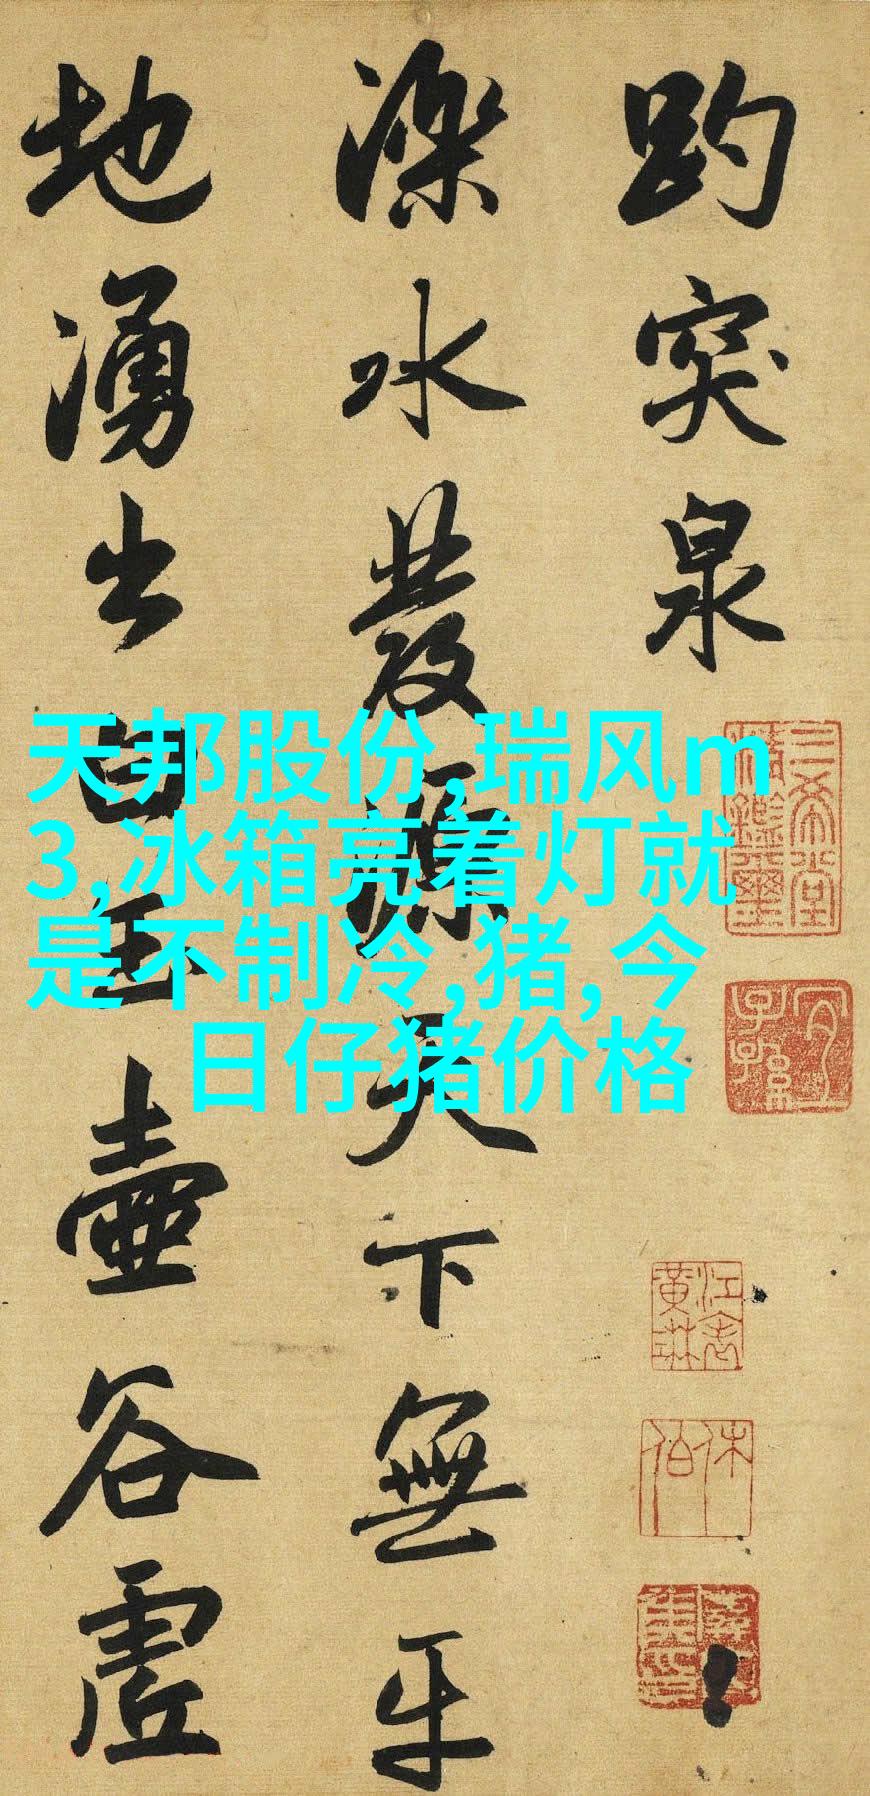 趵突泉
濼水發源天下無
平地湧出白玉壺
谷虛
天邦股份,瑞风m
3,冰箱亮着灯就
是不制冷,猪,今
日仔猪价格
三希堂
精鑑璽
宜子孫